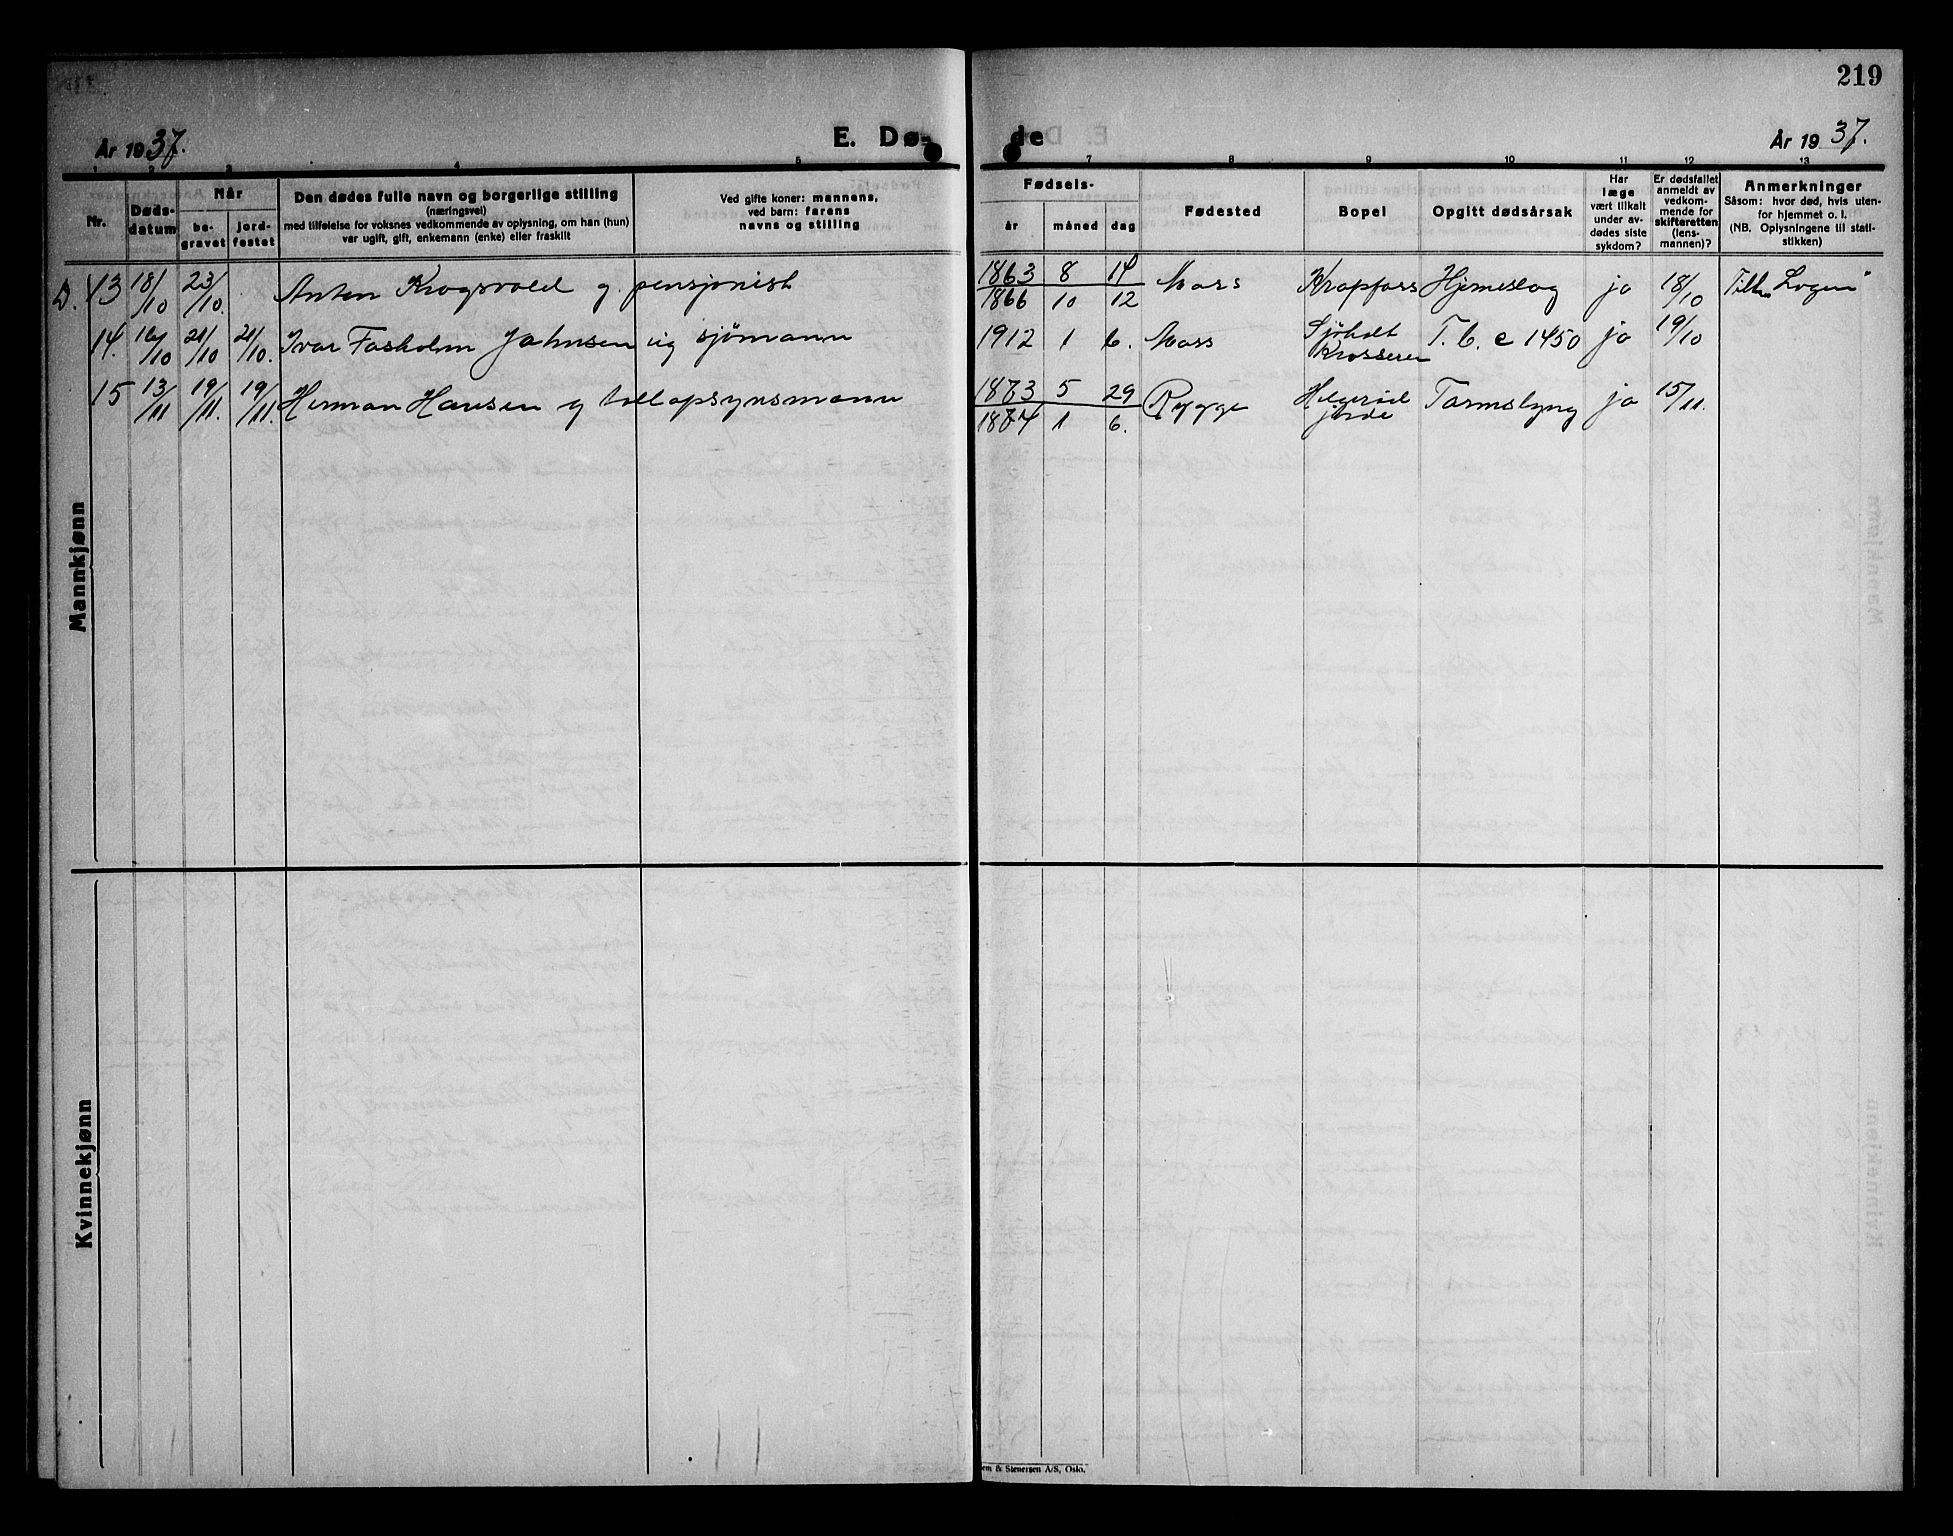 219
År 1937.
E. Dø-
de
År 1937.
1 2 3 4 5 7 8 9 10 11 12 13
Nr.
Døds-
datum
Når
be-
gravet
jord-
festet
Den dødes fulle navn og borgerlige stilling
(næringsvei)
med tilføielse for voksnes vedkommende av oplysning, om han (hun)
var ugift, gift, enkemann (enke) eller fraskilt
Ved gifte koner: mannens,
ved barn: farens
navns og stilling
Fødsels-
år måned dag
Fødested
Bopel
Opgitt dødsårsak
Har
læge
vært tilkalt
under av-
dødes siste
sykdom?
Er dødsfallet
anmeldt av
vedkom-
mende for
skifteretten
(lens-
mannen)?
Anmerkninger
Såsom: hvor død, hvis uten-
for hjemmet o. l.
(NB. Oplysningene til stati-
stikken)
D. 13 18/10 23/10. Anton Krogsvold g. pensjonist 1863 8 14 Moss Krapfoss Hjerneslag ja 18/10 Tilh. "Logen"
1866 10 12
14. 16/10 21/10 21/10. Ivar Fosholm Johnsen ug sjømann 1912 1 6. Moss Sjøholt T. b. c 1450 ja 19/10
Krosseren
15 13/11 19/11. 19/11. Herman Hansen g tollopsynsmann 1873 5 29 Rygge Helgerød Tarmslyng ja 15/11.
jorde
1874 1 6.
Mannkjønn
Kvinnekjønn
em & Stenersen A/S, Oslo.